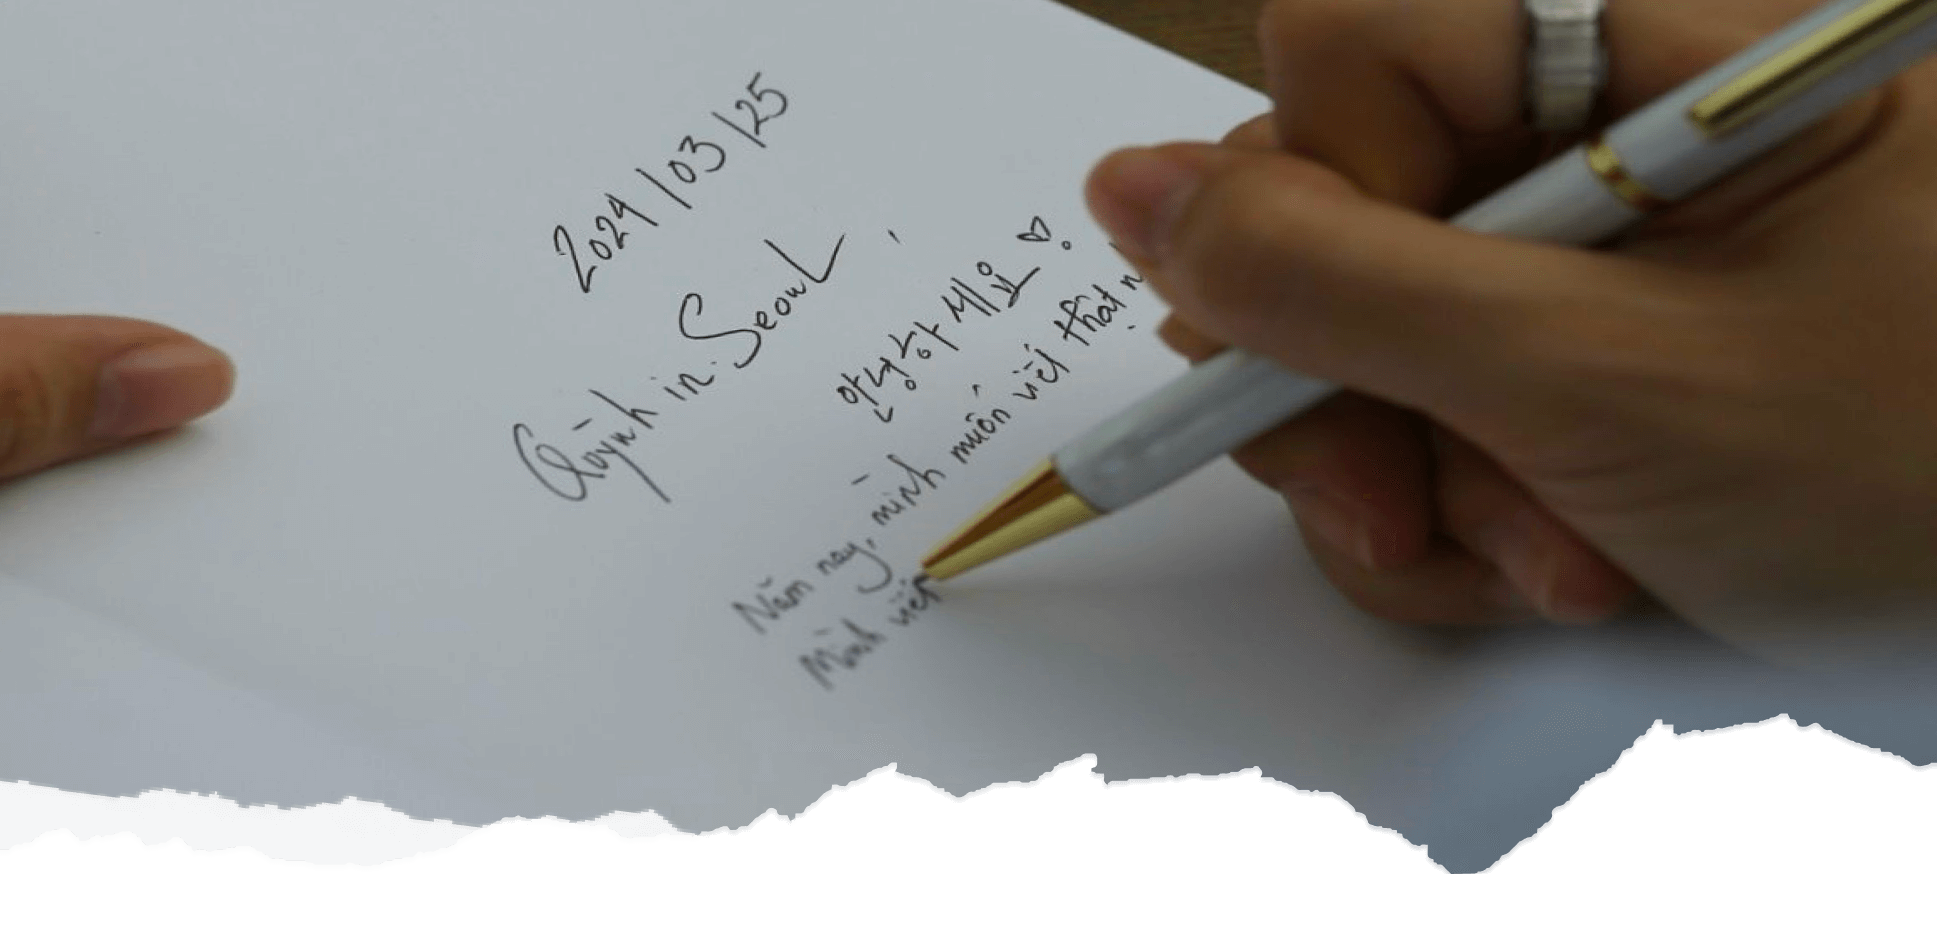 2024/03/25
Quỳnh in Seoul,
안녕하세요♡.
Năm nay, mình muốn viết thật
Mình viết